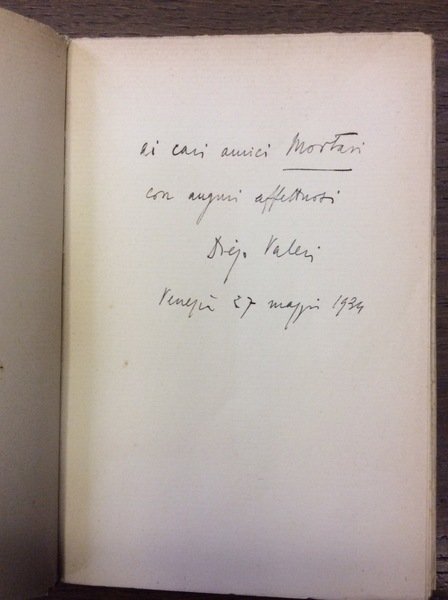 ai cari amici Mortari
con auguri affettuosi
Diego Valeri
Venezia 27 maggio 1934